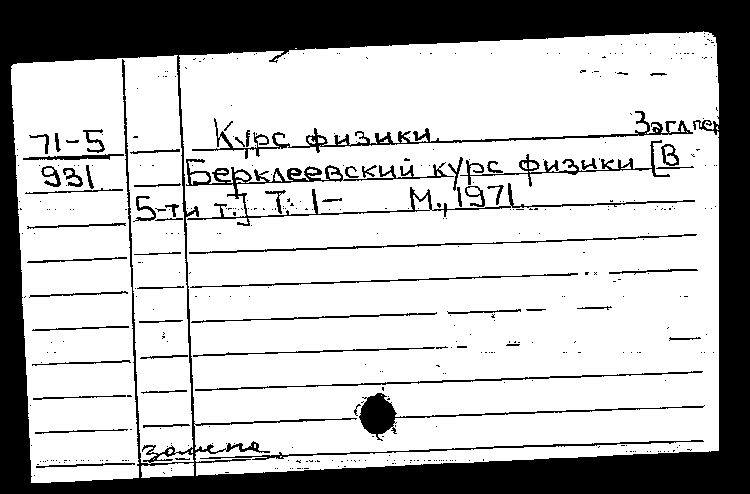 71-5 Курс физики. Загл. пер
931 Берклеевский курс физики [В
5-ти т.] Т. 1- М., 1971.
замена